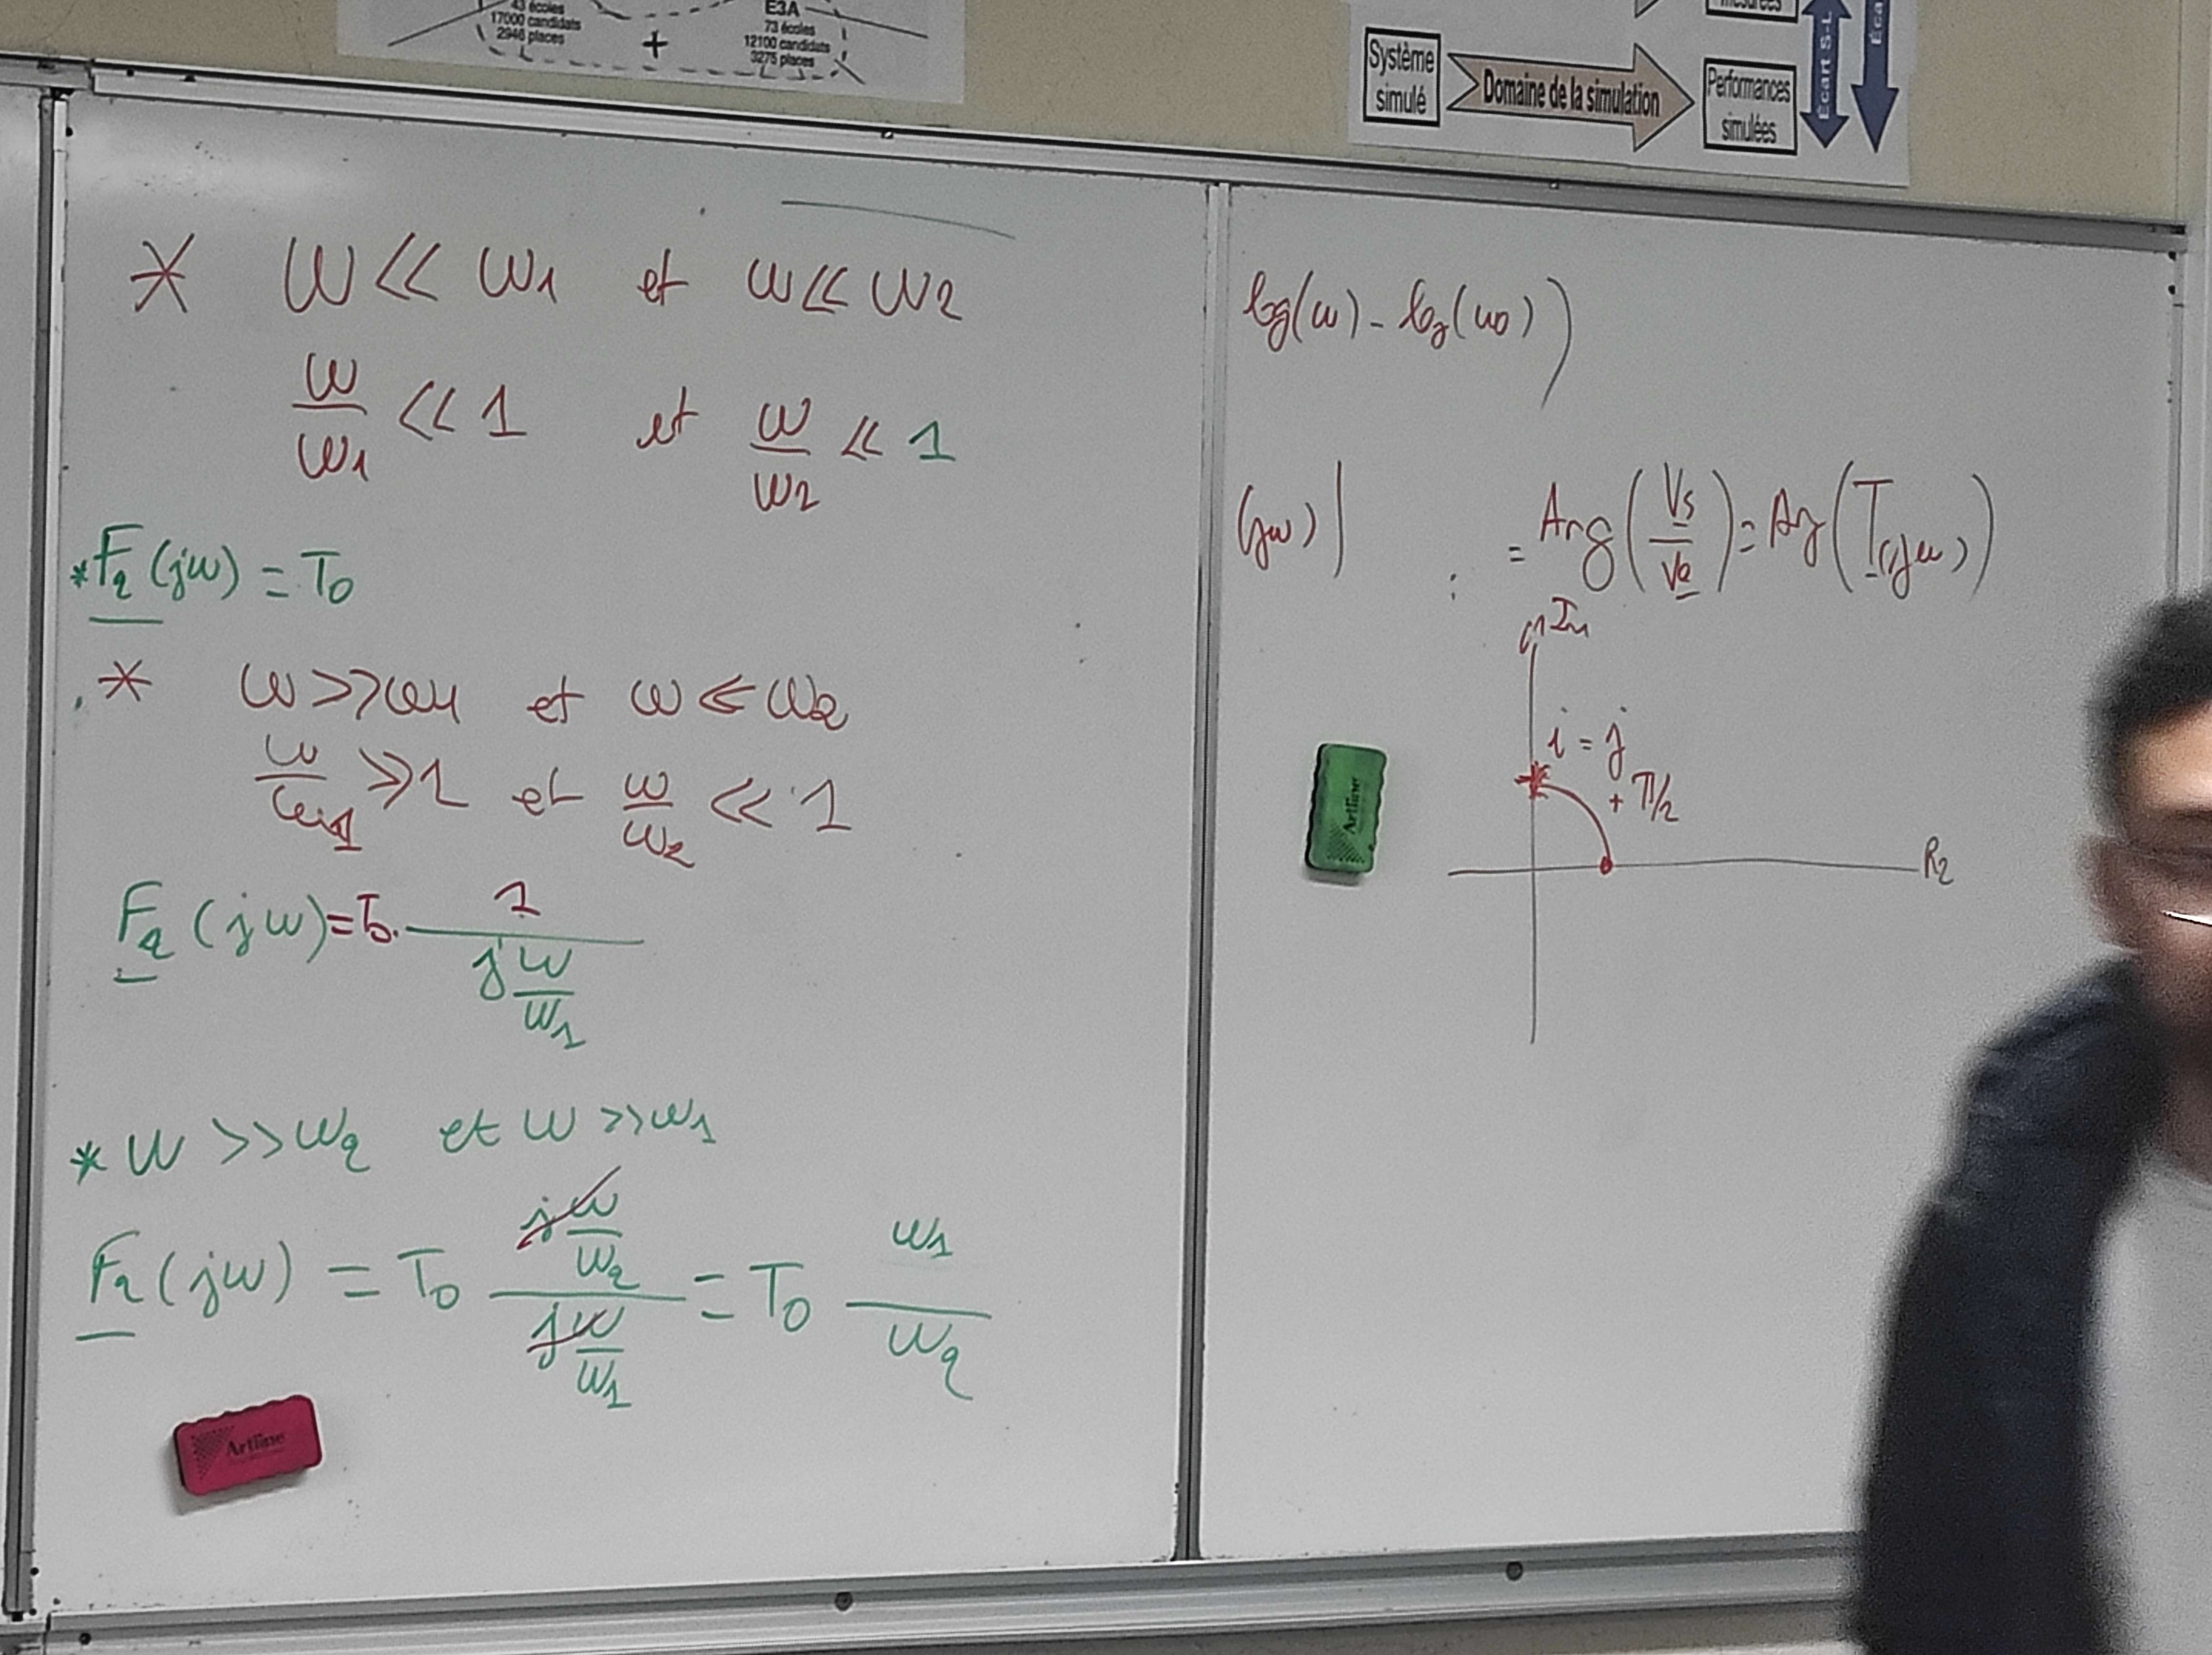 43 écoles
17000 candidats
2946 places
+
E3A
73 écoles
12100 candidats
3275 places
mesurées
Système simulé
Domaine de la simulation
Performances simulées
Écart S-L
Éca
* ω << ω1 et ω << ω2
ω/ω1 << 1 et ω/ω2 << 1
* F2 (jω) = T0
* ω >> ω1 et ω << ω2
ω/ω1 >> 1 et ω/ω2 << 1
F2 (jω) = T0 . 1 / (j ω/ω1)
* ω >> ω2 et ω >> ω1
F2 (jω) = T0 (j ω/ω2) / (j ω/ω1) = T0 ω1/ω2
Artline
log(ω) - log(ω0))
(jω)|
: = Arg(Vs/Ve) = Arg(T(jω))
Im
i = j
+ π/2
Re
Artline